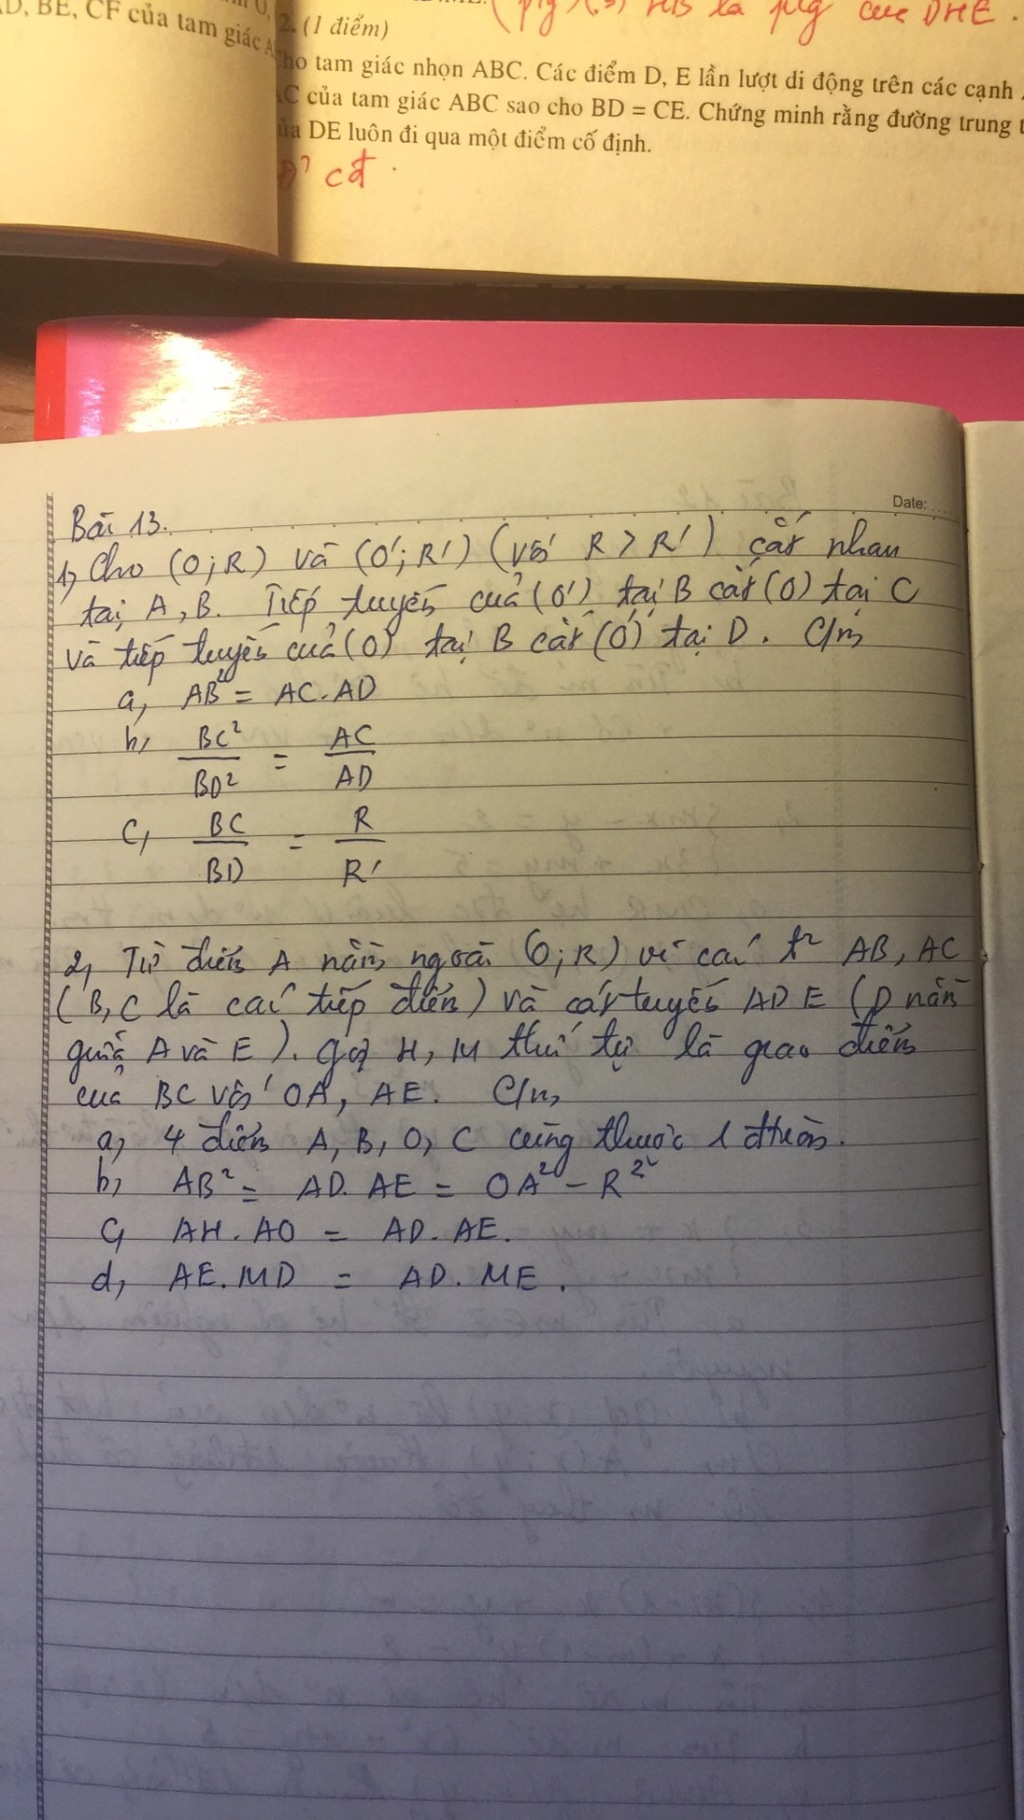 AD, BE, CF của tam giác A
2. (1 điểm)
ho tam giác nhọn ABC. Các điểm D, E lần lượt di động trên các cạnh
AC của tam giác ABC sao cho BD = CE. Chứng minh rằng đường trung t
ủa DE luôn đi qua một điểm cố định.
cđ
(p/g) HB là p/g của DHE.
Date:
Bài 13.
1, Cho (O;R) và (O';R') (với R > R') cắt nhau
tại A, B. Tiếp tuyến của (O') tại B cắt (O) tại C
và tiếp tuyến của (O) tại B cắt (O') tại D. C/m
a, AB² = AC.AD
b, BC²/BD² = AC/AD
c, BC/BD = R/R'
2, Từ điểm A nằm ngoài (O;R) vẽ các t² AB, AC
(B, C là các tiếp điểm) và cát tuyến ADE (D nằm
giữa A và E). Gọi H, M thứ tự là giao điểm
của BC với OA, AE. C/m
a, 4 điểm A, B, O, C cùng thuộc 1 đtròn.
b, AB² = AD.AE = OA² - R²
c, AH.AO = AD.AE.
d, AE.MD = AD.ME.